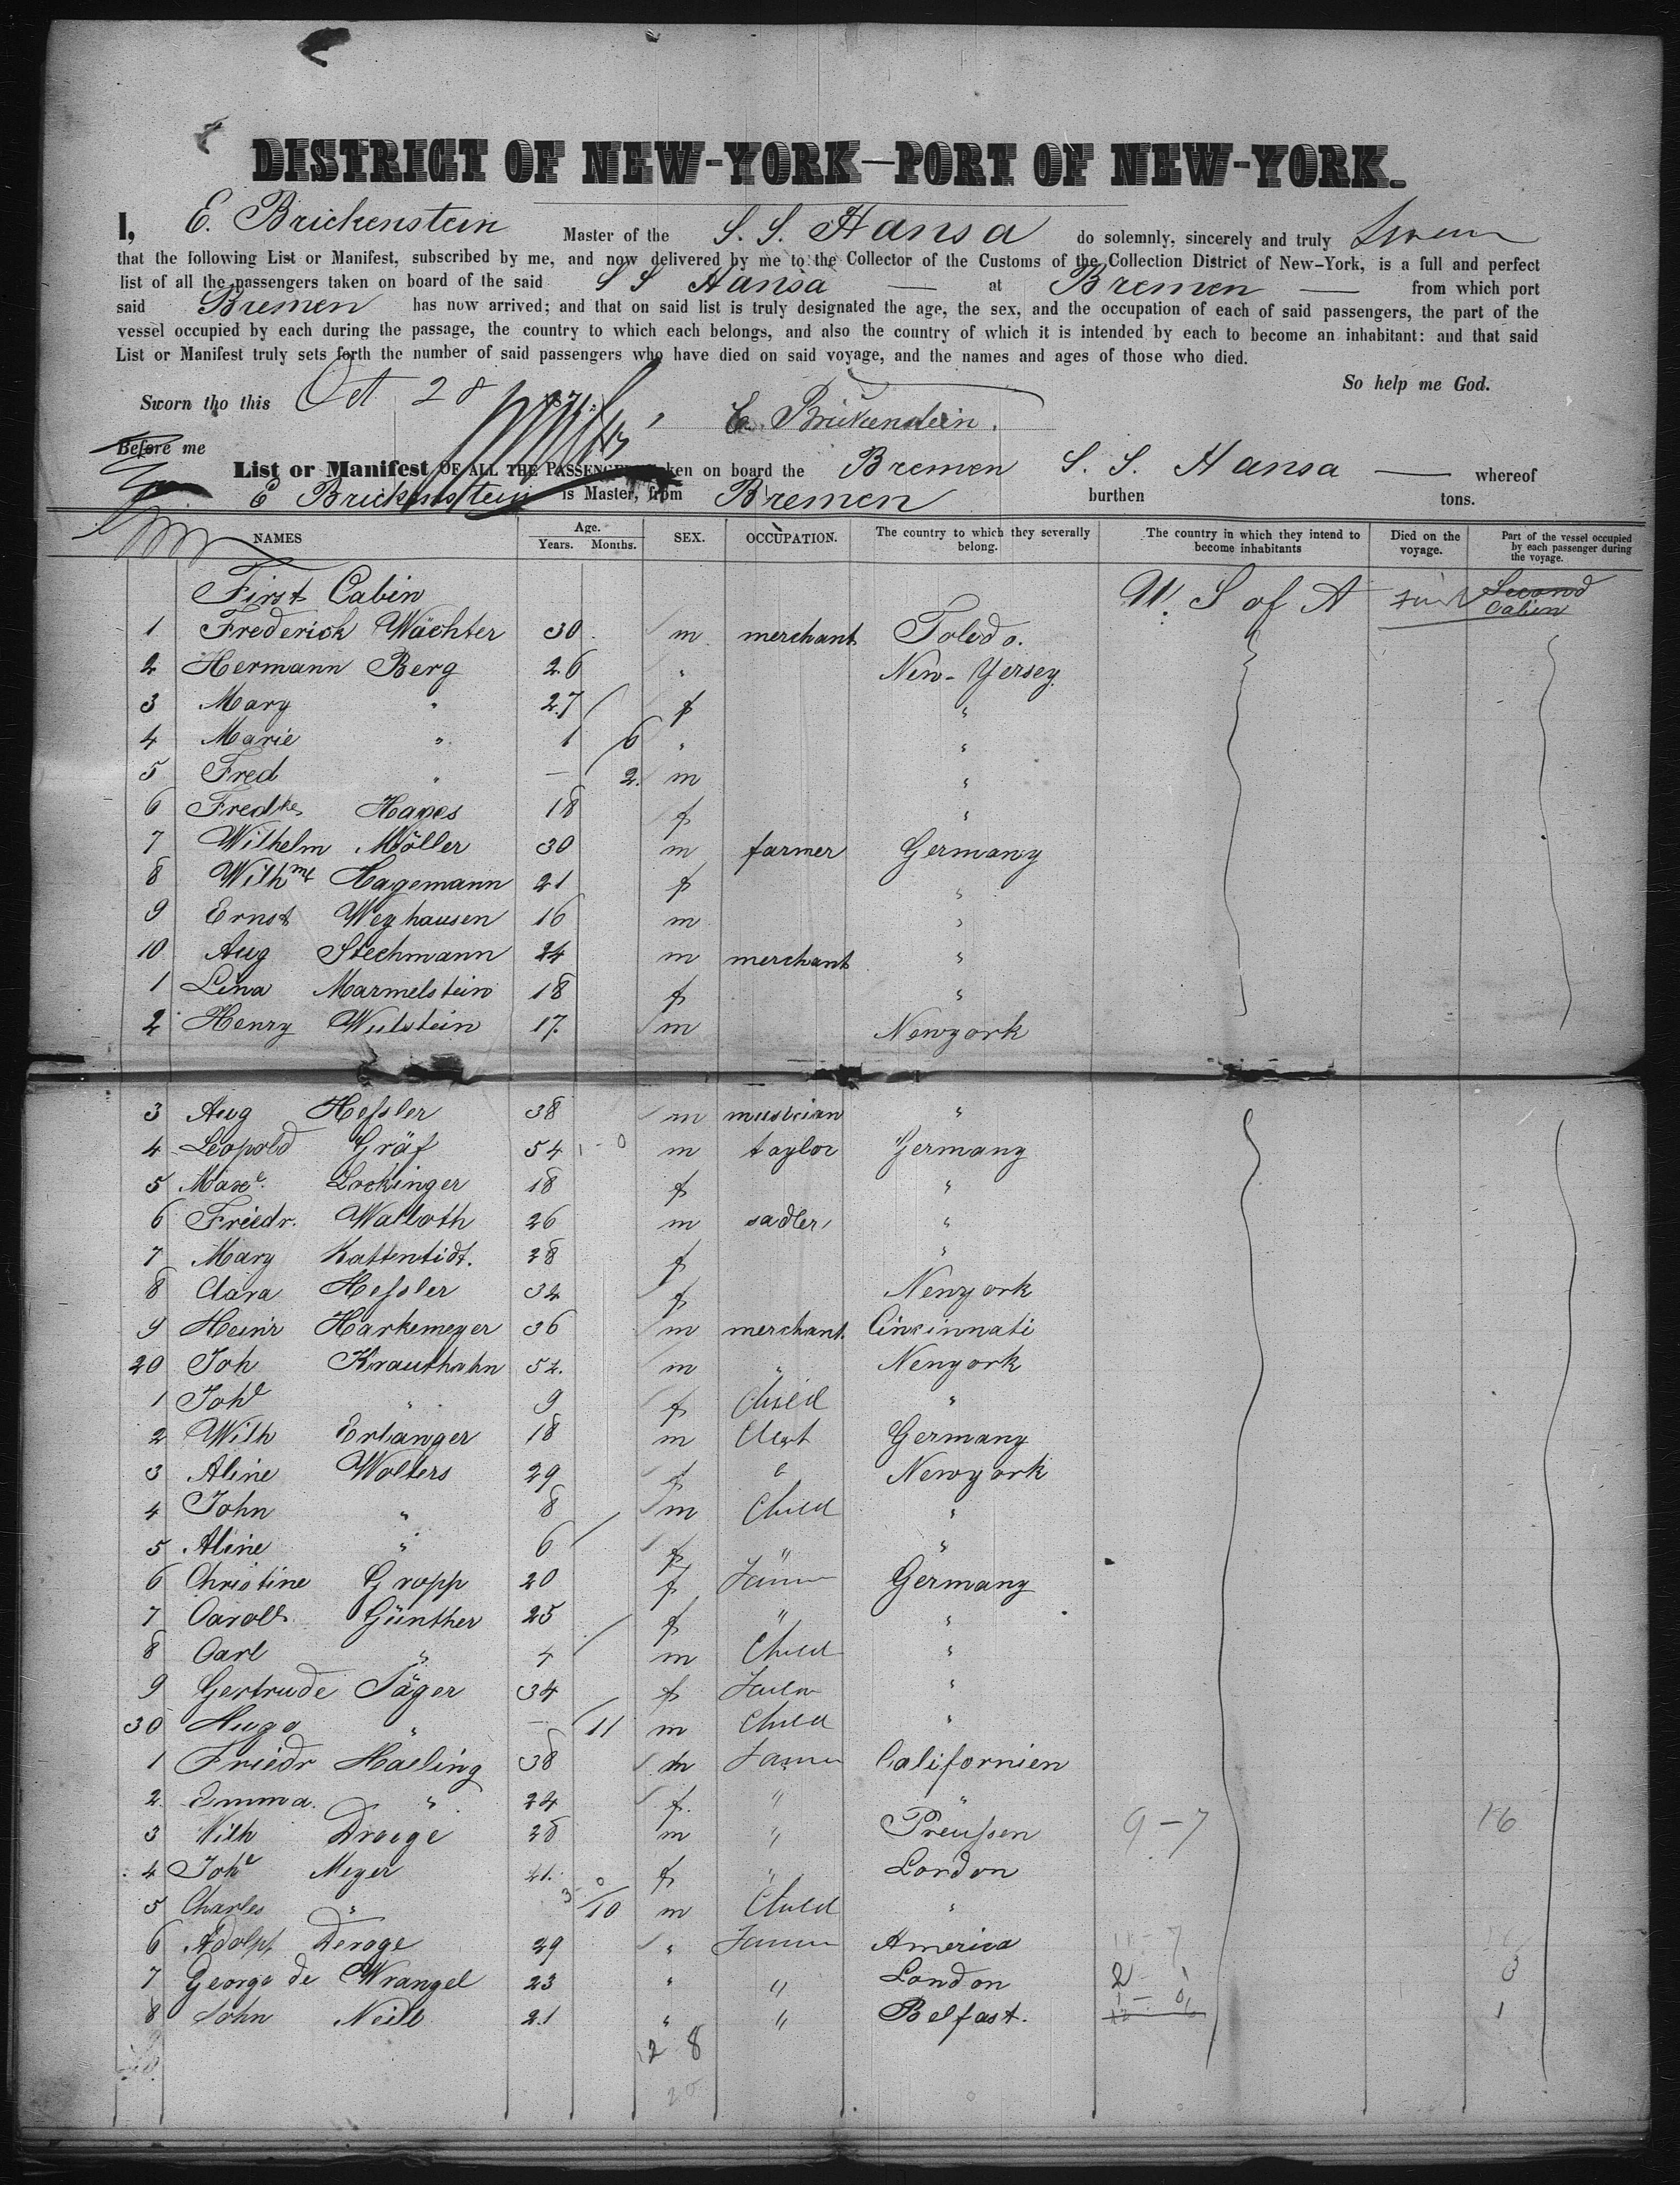 DISTRICT OF NEW-YORK—PORT OF NEW-YORK.
I, E. Brickenstein Master of the S. S. Hansa do solemnly, sincerely and truly Swear
that the following List or Manifest, subscribed by me, and now delivered by me to the Collector of the Customs of the Collection District of New-York, is a full and perfect
list of all the passengers taken on board of the said S S Hansa — at Bremen — from which port
said Bremen has now arrived; and that on said list is truly designated the age, the sex, and the occupation of each of said passengers, the part of the
vessel occupied by each during the passage, the country to which each belongs, and also the country of which it is intended by each to become an inhabitant: and that said
List or Manifest truly sets forth the number of said passengers who have died on said voyage, and the names and ages of those who died.
So help me God.
Sworn tho this Oct 28
E. Brickenstein.
Before me
List or Manifest OF ALL THE PASSENGERS taken on board the Bremen S. S. Hansa — whereof
E Brickenstein is Master, from Bremen burthen tons.
NAMES Age. Years. Months. SEX. OCCUPATION. The country to which they severally belong. The country in which they intend to become inhabitants Died on the voyage. Part of the vessel occupied by each passenger during the voyage.
First Cabin U. S of A Second Cabin
1 Frederick Wächter 30 m merchant Toledo.
2 Hermann Berg 26 " New-Yersey
3 Mary " 27 f "
4 Marie " 1 6 " "
5 Fred " — 2 m "
6 Fredke Hayes 18 f "
7 Wilhelm Möller 30 m farmer Germany
8 Wilhmt Hagemann 21 f "
9 Ernst Weyhausen 16 m "
10 Aug Stechmann 24 m merchant "
1 Lina Marmelstein 18 f "
2 Henry Wulstein 17. m Newyork
3 Aug Heſsler 38 m musician "
4 Leopold Gräf 54 m taylor Germany
5 Maxe. Lockinger 18 f "
6 Friedr. Walloth 26 m sadler "
7 Mary Kattentidt. 28 f "
8 Clara Heſsler 32 f Newyork
9 Heinr Harkemeyer 36 m merchant. Cincinnati
20 Joh Krauthahn 52. m " Newyork
1 Johe " 9 f Child "
2 Wilh Erlanger 18 m Germany
3 Aline Wolters 29 f Newyork
4 John " 8 m Child "
5 Aline " 6 f " "
6 Christine Gropp 20 f Germany
7 Carole Günther 25 f " "
8 Carl " 4 m Child "
9 Gertrude Jäger 34 f "
30 Hugo " — 11 m Child "
1 Friedr Haeling 38 m Californien
2 Emma. " 24 f. " "
3 Wilh Droege 28 m " Preuſsen 9-7 16
4 Johe Meyer 21. f " London
5 Charles " 10 m Child "
6 Adolph Deroge 29 " America
7 George de Wrangel 23 " " London 2 3
8 John Neill 21 " " Belfast. 1
28